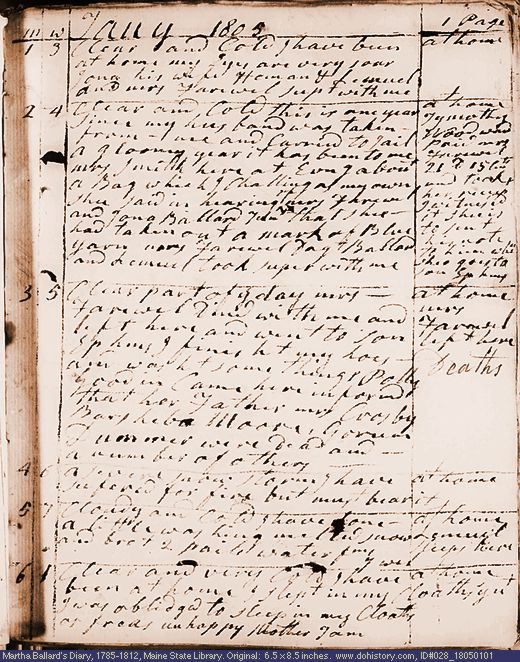 m w Jany 1805 1 Page
1 3 Clear and Cold I have been at home
at home my Eyes are very soar
Jona his wife Heman & Lemuel
and mrs Farewel supt with me
2 4 Clear and Cold this is one year at home
since my husband was taken Tymothy
from me and Carried to Jail Woodward
a gloomy year it has been to me Paid mrs
mrs Smith here at Evng about Farewel
a Bag which I Challing as my own 21 D 15 Cts
she said in hearing mrs Farewel and take
and Jona Ballard Junr that she her receipt
had taken out a mark of Blue
yarn mrs Farewel Dagt Ballard
and Lemuel took super with me
3 5 Clear part of ye day mrs at home
Farewel Dind with me and mrs
left here and went to son Farewel
Ephms I finisht my hoes left here
and washt some things Polly Deaths
good in Came here informd
that her Father mrs Crosby
Barsheba Moore,
were dead and
a number of others
4 6 a severe snow storm I have at home
suferd for fire but must bear it
5 7 Cloudy and Cold I have Done at home
a little washing me Lemuel
and brot 2 pails water from ye well sleeps here
6 1 Clear and very Cold I have at home
been at home I slept in my Cloaths
I was obligd to sleep in my Cloaths
or freeds unhappy Mother I am
Martha Ballard's Diary, 1785-1812, Maine State Library. Original: 6.5 x 8.5 inches. www.dohistory.com, ID#028_18050101